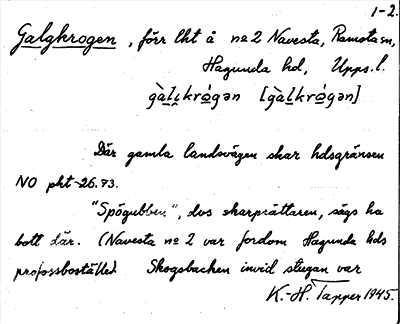 1-2.
Galgkrogen, förr lht å no 2 Navesta, Ramsta sn,
Hagunda hd, Upps. l.
gàl̥krógən [gàlkrógən]
Där gamla landsvägen skar hdsgränsen
NO pkt 26.73.
"Spögubben", dvs skarprättaren, sägs ha
bott där. (Navesta no 2 var fordom Hagunda hds
profossboställe). Skogsbacken invid stugan var
K.-H. Tapper 1945.